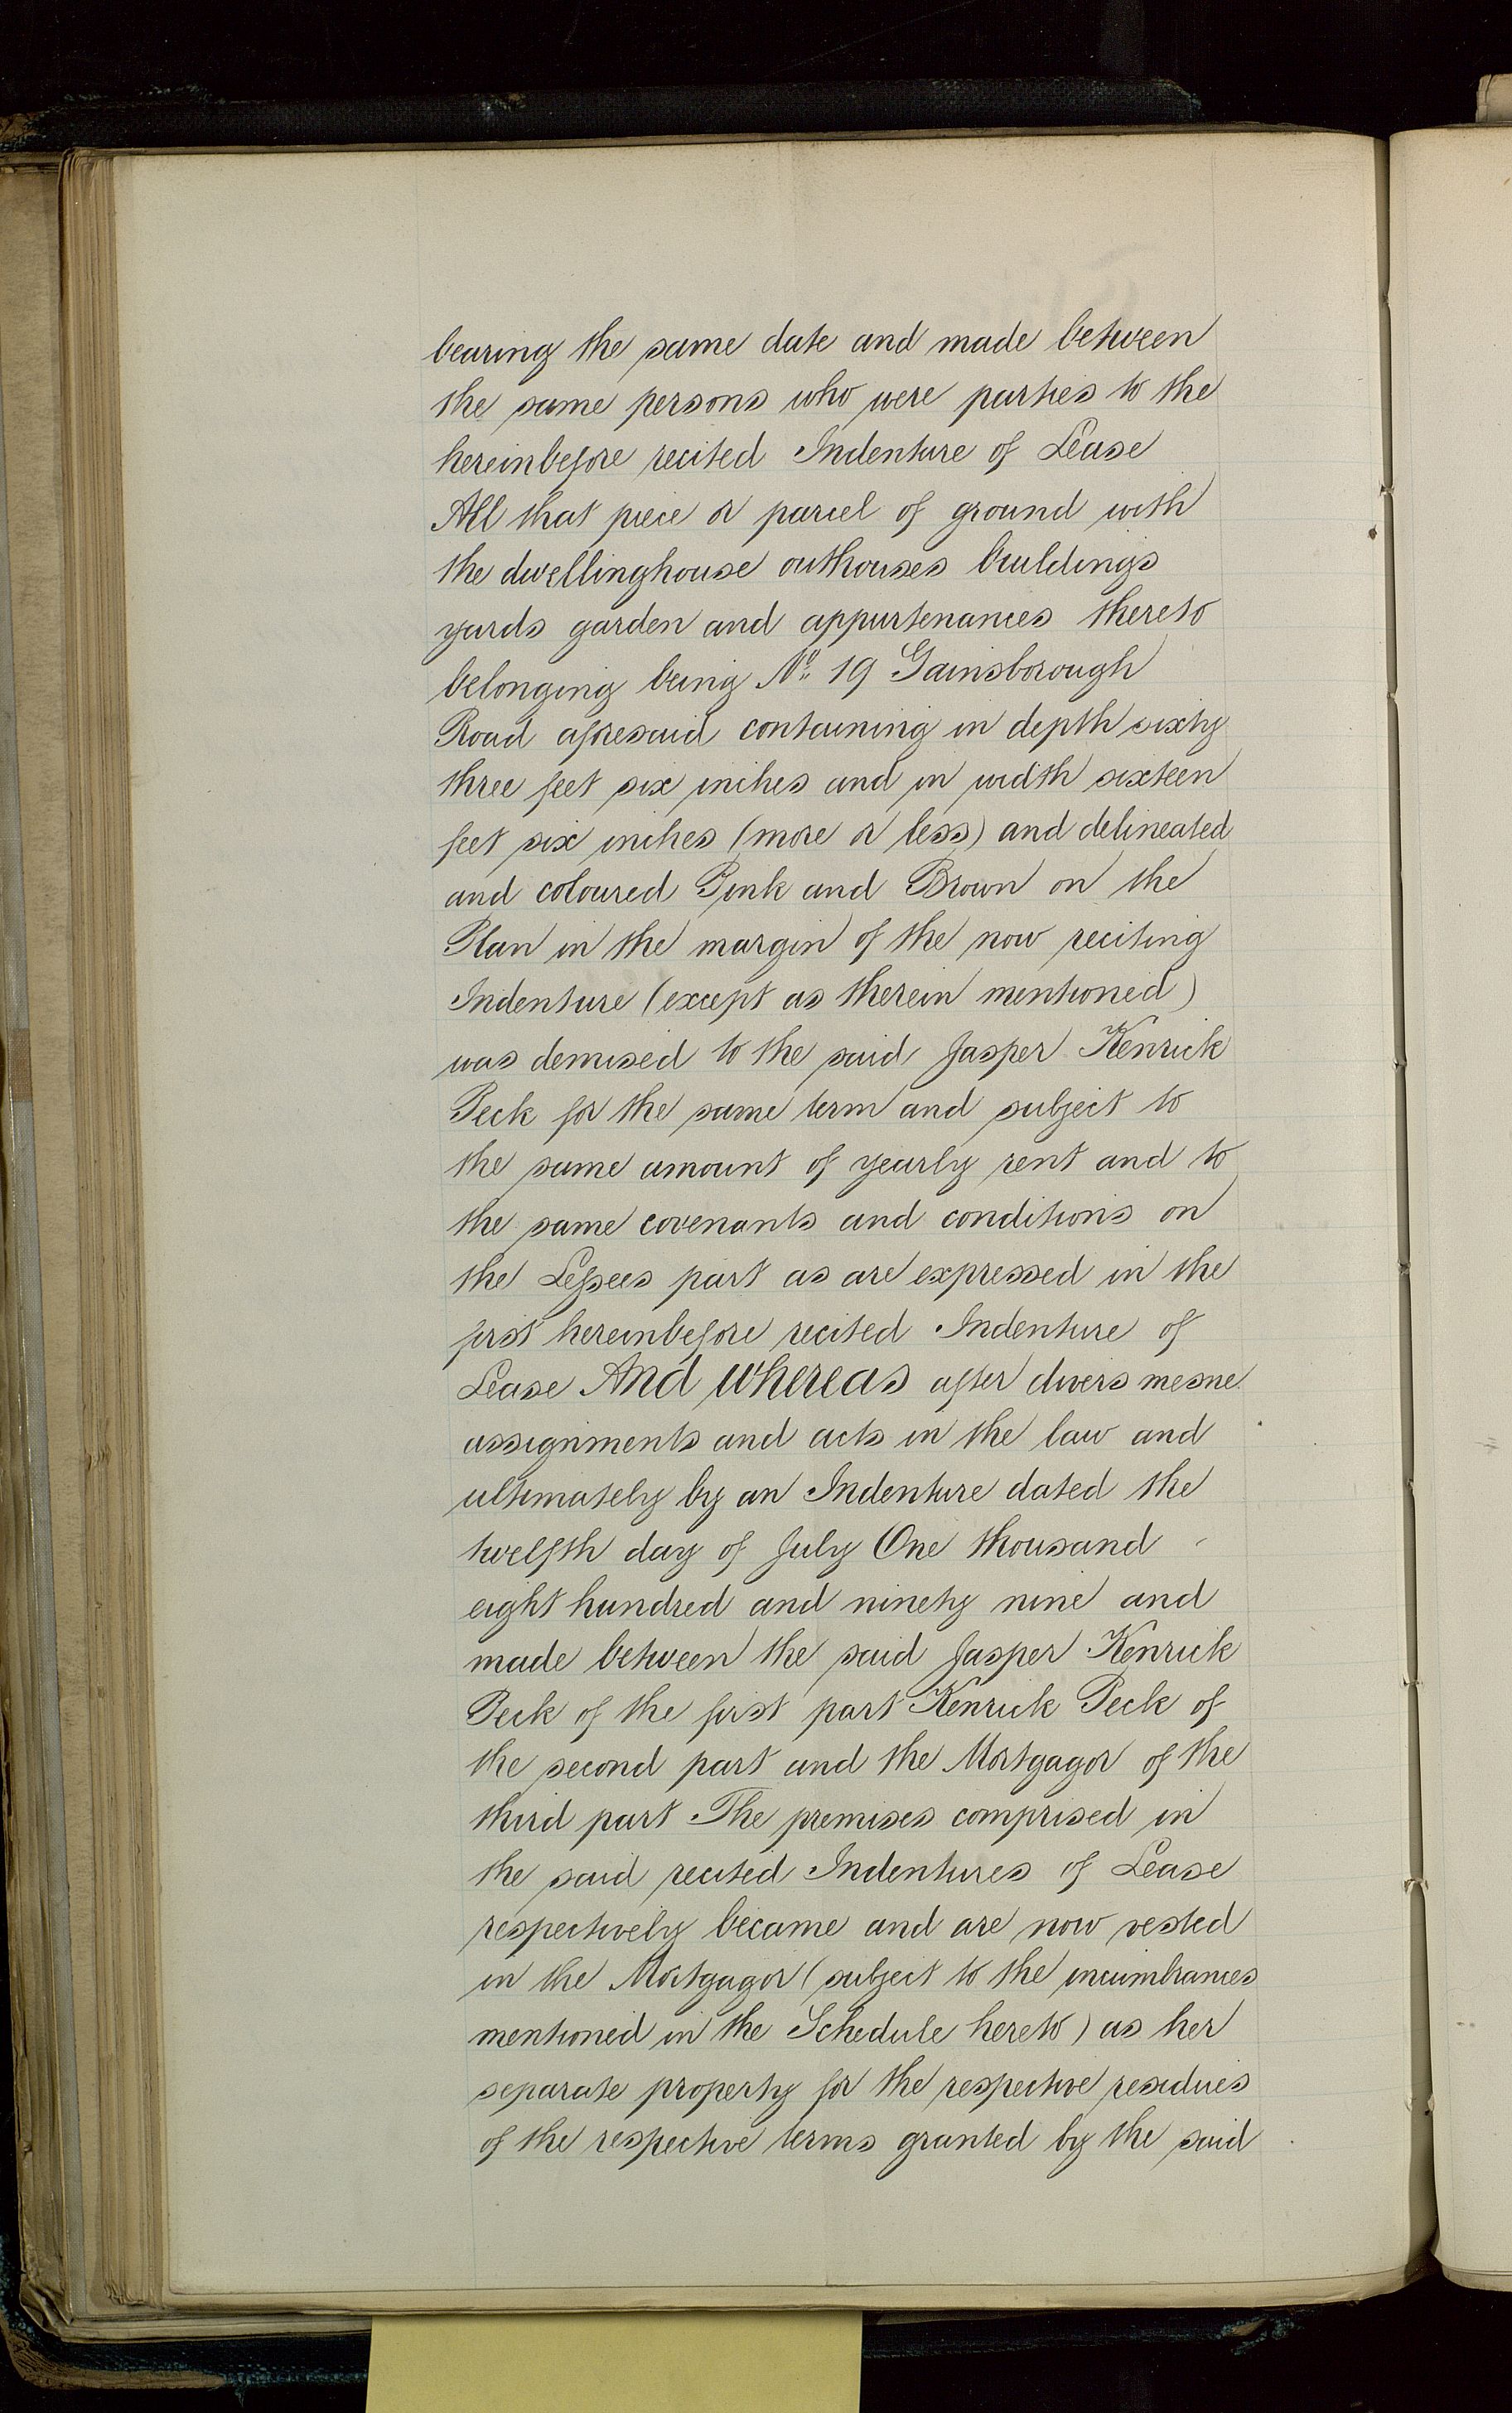 bearing the same date and made between
the same persons who were parties to the
hereinbefore recited Indenture of Lease
All that piece or parcel of ground with
the dwellinghouse outhouses buildings
yards garden and appurtenances thereto
belonging being No. 19 Gainsborough
Road aforesaid containing in depth sixty
three feet six inches and in width sixteen
feet six inches (more or less) and delineated
and coloured Pink and Brown on the
Plan in the margin of the now reciting
Indenture (except as therein mentioned)
was demised to the said Jasper Kenrick
Peck for the same term and subject to
the same amount of yearly rent and to
the same covenants and conditions on
the Lessees part as are expressed in the
first hereinbefore recited Indenture of
Lease And whereas after divers mesne
assignments and acts in the law and
ultimately by an Indenture dated the
twelfth day of July One thousand
eight hundred and ninety nine and
made between the said Jasper Kenrick
Peck of the first part Kenrick Peck of
the second part and the Mortgagor of the
third part The premises comprised in
the said recited Indentures of Lease
respectively became and are now vested
in the Mortgagor (subject to the incumbrances
mentioned in the Schedule hereto) as her
separate property for the respective residues
of the respective terms granted by the said